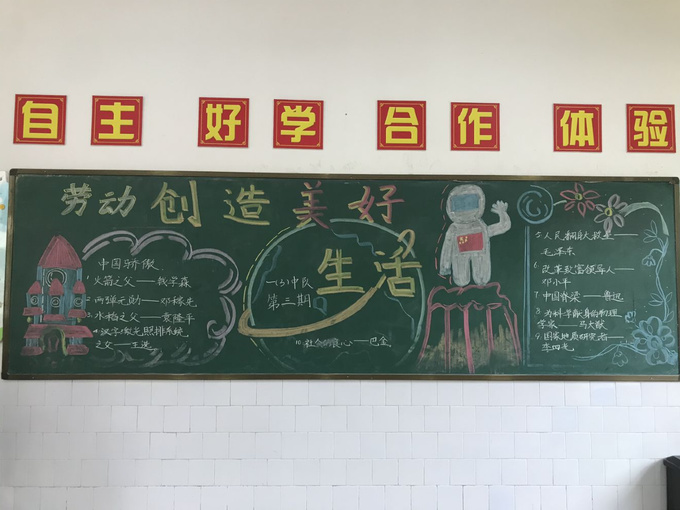 自主 好学 合作 体验
劳动创造美好
生活
中国骄傲
1.火箭之父——钱学森
2.两弹元勋——邓稼先
3.水稻之父——袁隆平
4.汉字激光照排系统
之父——王选
一(3)中队
第三期
10.社会的良心——巴金
5.人民翻身大救星——
毛泽东
6.改革致富领导人——
邓小平
7.中国脊梁——鲁迅
8.为科学献身的物理
学家——马大猷
9.国家地质研究者——
李四光